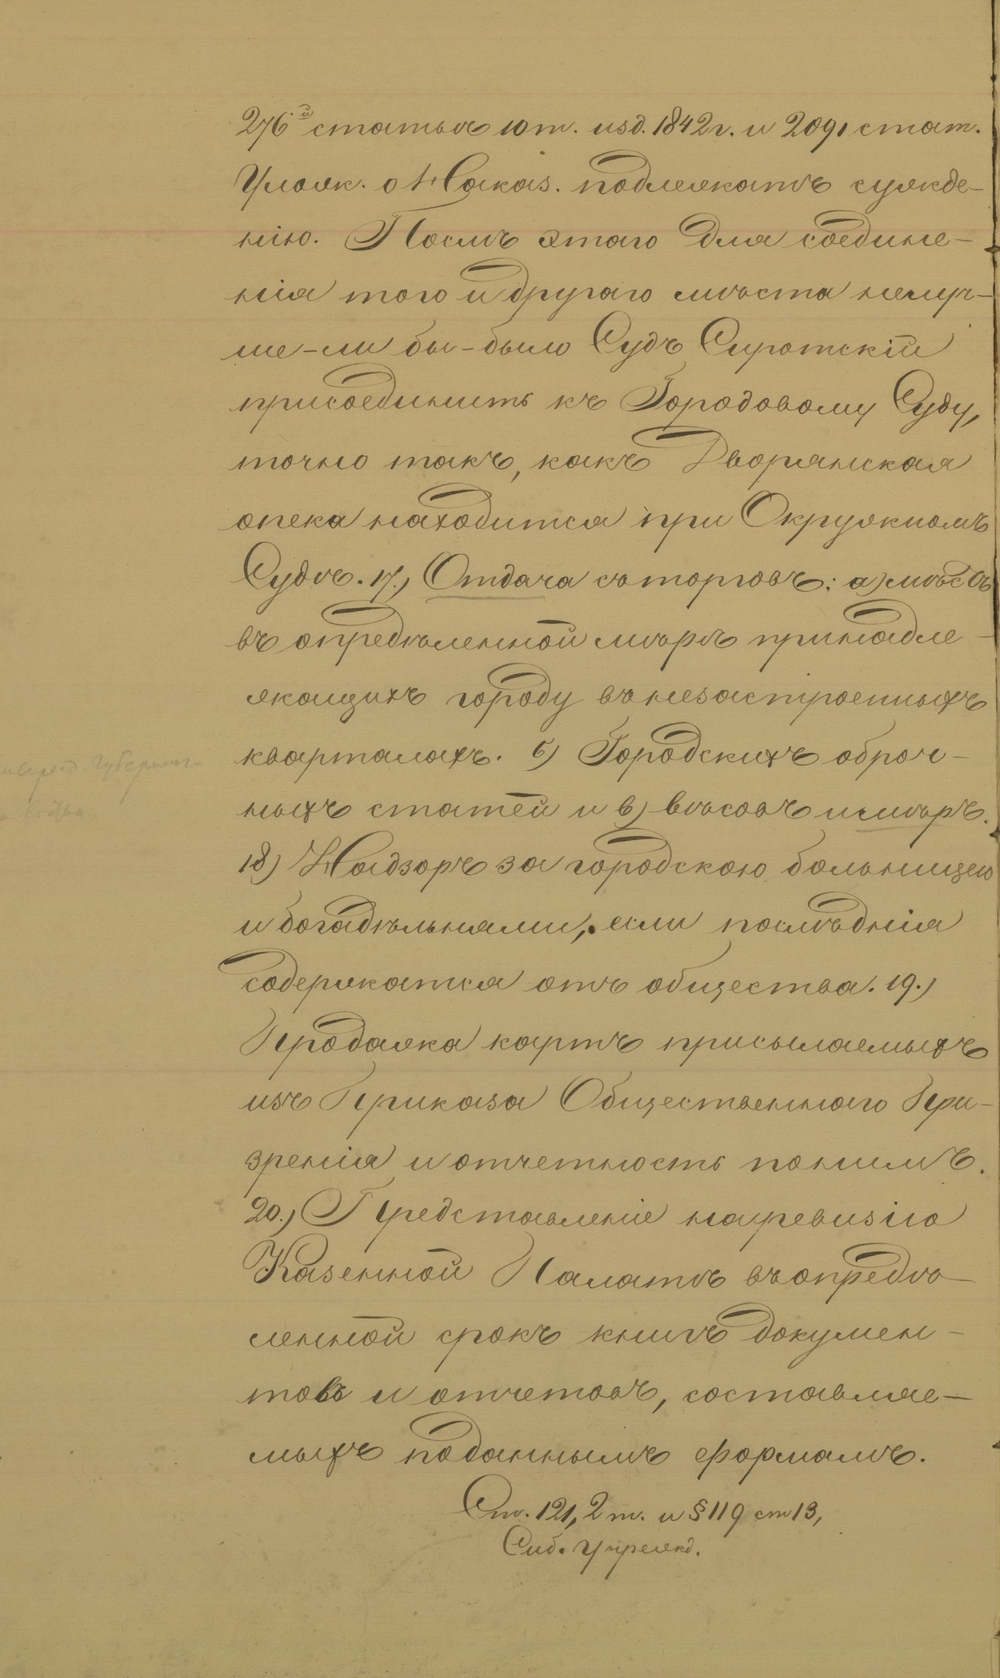 276й статьѣ 10 т. изд. 1842 г. и 2091 стат.
Улож. о Наказ. подлежатъ сужде-
нію. Послѣ этаго для соедине-
нія того и другаго мѣста нелуч-
ше-ли бы-было Судъ Сиротскій
присоединить къ Городовому Суду,
точно такъ, какъ Дворянская
опека находится при Окружномъ
Судѣ. 17.) Отдача съ торговъ: а) мѣстъ
въ определенной мѣрѣ принадле-
жащихъ городу въ незастроенныхъ
кварталахъ. б) Городскихъ оброч-
ныхъ статей и в) вѣсовъ и мѣръ.
18) Надзоръ за городскою больницею
и богадѣльнями, если послѣднія
содержатся отъ общества. 19.)
Продажа картъ присылаемыхъ
изъ Приказа Общественнаго При-
зренія и отчетность по нимъ.
20.) Представленіе на ревизію
Казенной Палатѣ въ опредѣ-
ленной срокъ книгъ докумен-
товъ и отчетовъ, составляе-
мыхъ по даннымъ формамъ.
Ст. 121, 2 т. и § 119 ст 13,
Сиб. Учрежд.